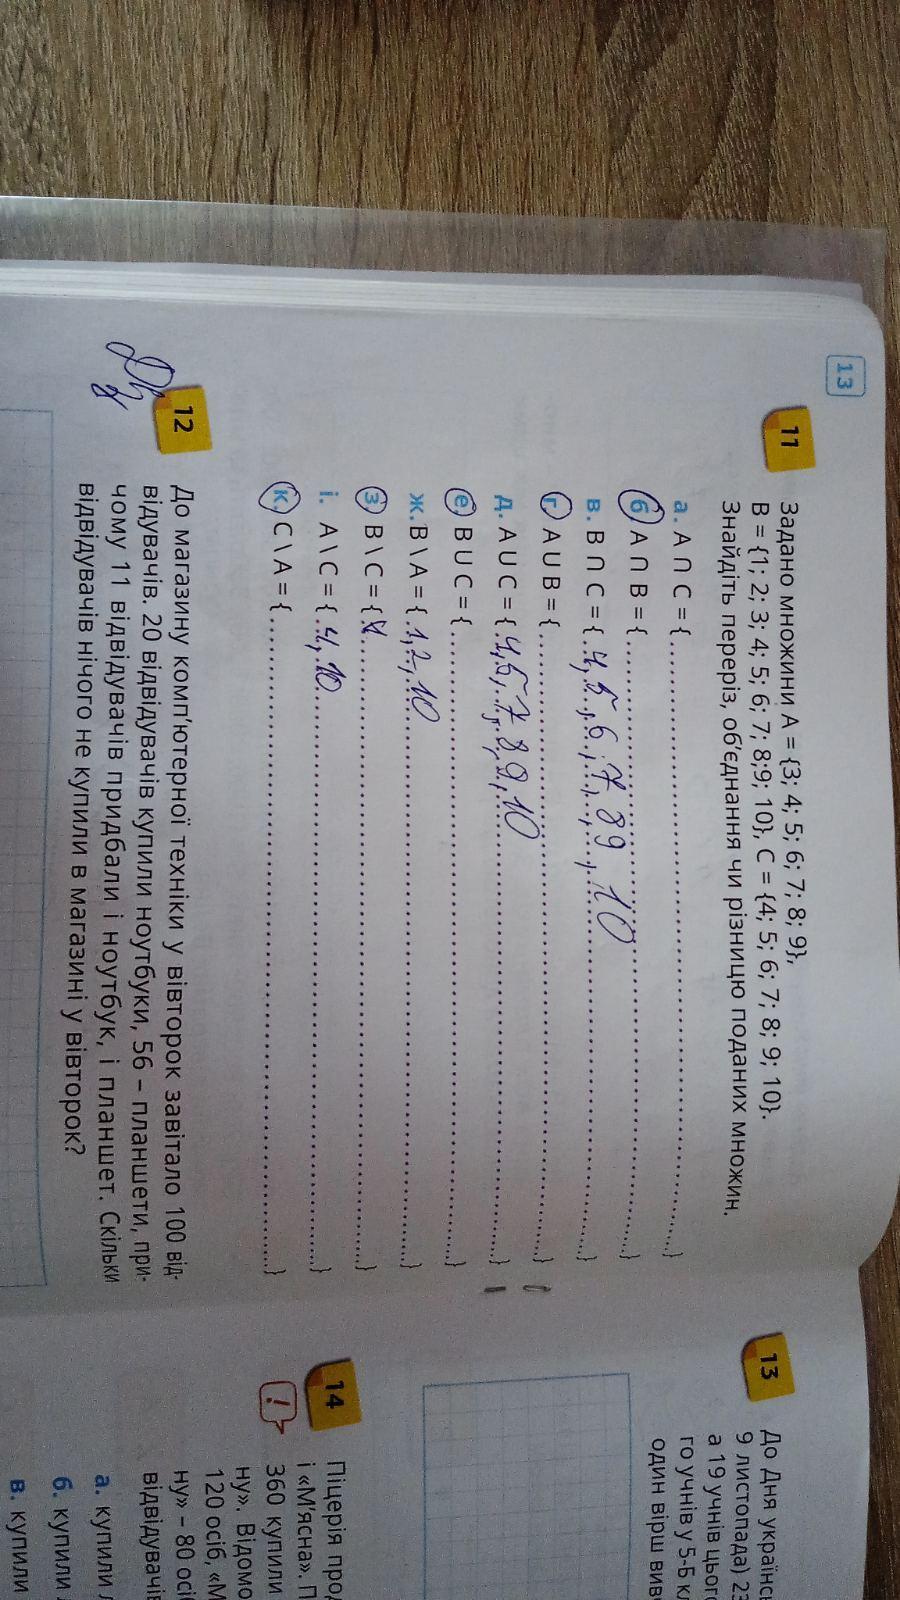 13
11
Задано множини A = {3; 4; 5; 6; 7; 8; 9},
B = {1; 2; 3; 4; 5; 6; 7; 8;9; 10}, C = {4; 5; 6; 7; 8; 9; 10}.
Знайдіть переріз, об'єднання чи різницю поданих множин.
а. A ∩ C = {..........}
б A ∩ B = {..........}
в. B ∩ C = { 4, 5, 6, 7, 8 9, 10 }
г. A ∪ B = {..........}
д. A ∪ C = { 4, 5, 7, 8, 9, 10 }
е. B ∪ C = {..........}
ж. B \ A = { 1, 2, 10 }
з. B \ C = { }
і. A \ C = { 4, 10 }
к. C \ A = {..........}
12
До магазину комп'ютерної техніки у вівторок завітало 100 від-
відувачів. 20 відвідувачів купили ноутбуки, 56 – планшети, при-
чому 11 відвідувачів придбали і ноутбук, і планшет. Скільки
відвідувачів нічого не купили в магазині у вівторок?
13
До Дня українсь
9 листопада) 23
а 19 учнів цього
го учнів у 5-Б кл
один вірш вив
14
!
Піцерія прод
і «М'ясна». П
360 купили
ну». Відомо
120 осіб, «М
ну» – 80 осіб
відвідувачів
а. купили
б. купили
в. купили